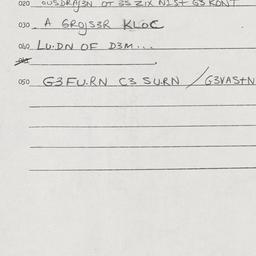 020 OUSDRAJ3N OT 3S ZIX NIST G3 KONT
030 A GROJS3R KLOC
040 LU.DN OF D3M...
050 G3FU.RN C3 SU.RN / G3VASTN